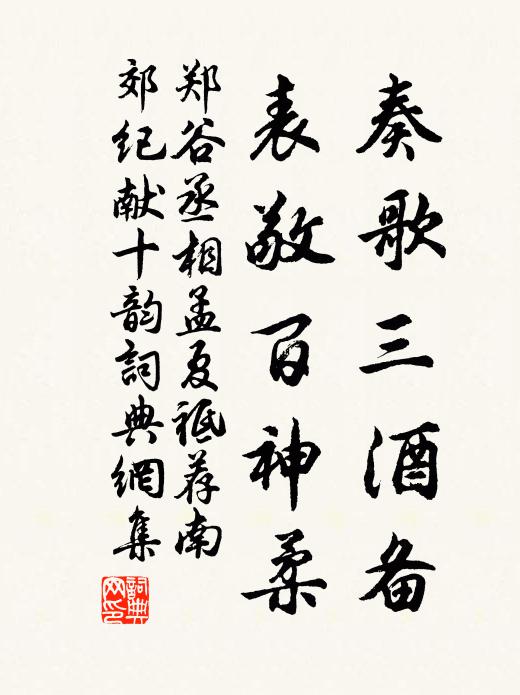 奏歌三酒备
表敬百神柔
郑谷丞相孟夏祗荐南
郊纪献十韵詞典網集
詞典網印